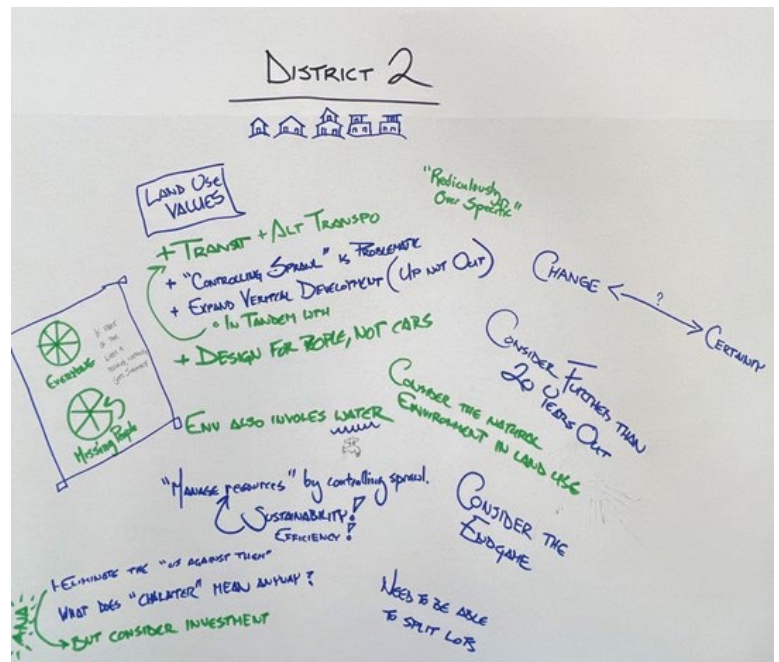 DISTRICT 2
LAND USE
VALUES
"Rediculously
Over Specific"
+ TRANSIT + ALT TRANSPO
+ "CONTROLLING SPRAWL" IS PROBLEMATIC
+ EXPAND VERTICAL DEVELOPMENT (UP NOT OUT)
IN TANDEM WITH
+ DESIGN FOR PEOPLE, NOT CARS
CHANGE
?
CERTAINTY
EVERYONE
Missing People
CONSIDER FURTHER THAN
20 YEARS OUT
ENV ALSO INVOLES WATER
CONSIDER THE NATURAL
ENVIRONMENT IN LAND USE
"MANAGE RESOURCES" by controlling sprawl.
SUSTAINABILITY!
EFFICIENCY!
CONSIDER THE
ENDGAME
ELIMINATE THE "US AGAINST THEM"
WHAT DOES "CHARACTER" MEAN ANYWAY?
BUT CONSIDER INVESTMENT
NEED TO BE ABLE
TO SPLIT LOTS